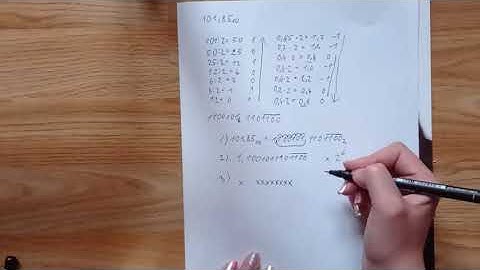 101,85₁₀
101:2=50 1
50:2=25 0
25:2=12 1
12:2=6 0
6:2=3 0
3:2=1 1
1:2=0 1
0,85·2=1,7 -1
0,7·2=1,4 -1
0,4·2=0,8 0
0,8·2=1,6 -1
0,6·2=1,2 -1
0,2·2=0,4 0
0,4·2=0,8 0
1100101, 1101100
1) 101,85₁₀ = 1100101, 1101100₂
2) 1,1001011101100 x 2⁶
3) x xxxxxxxx